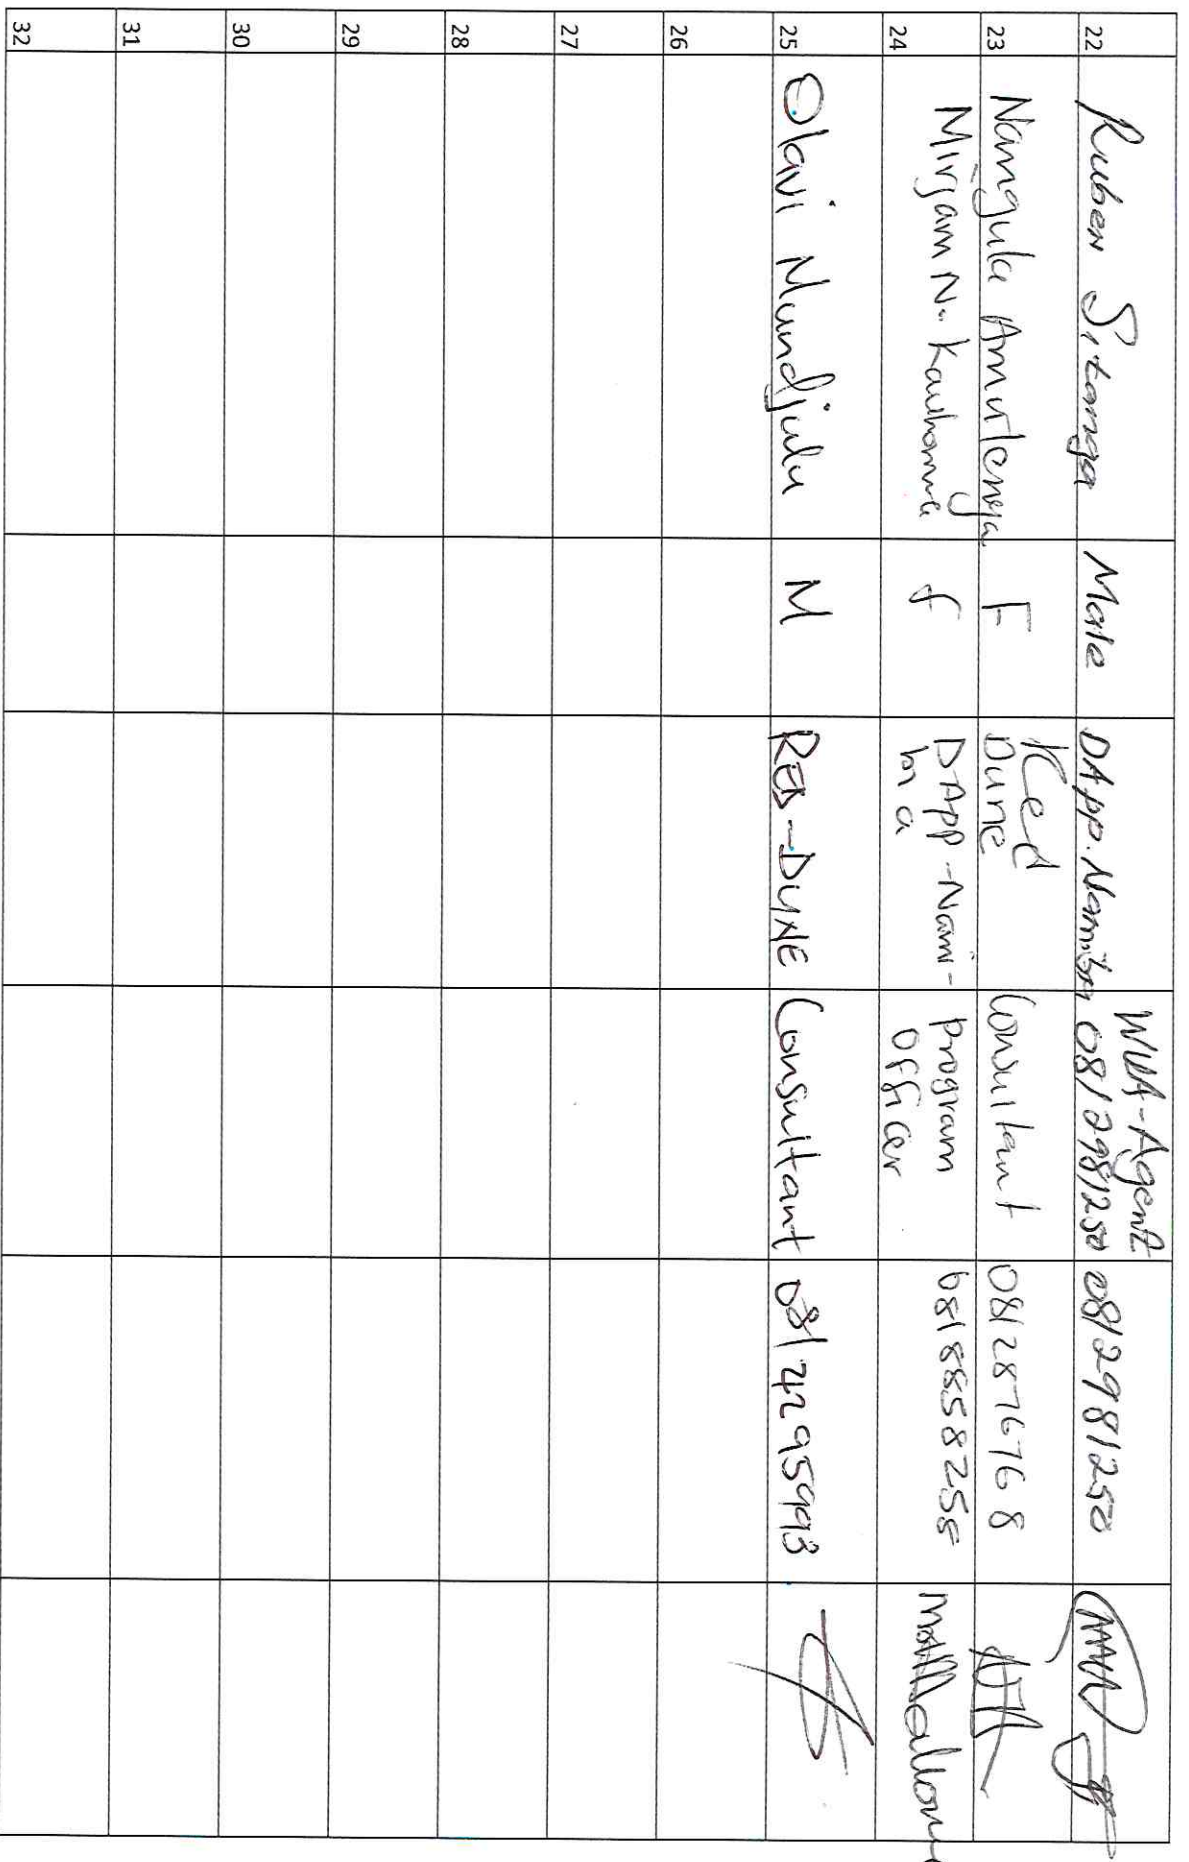 22 Ruben Sitanga Male DApp.Namibia WUA-Agent 0812981250 0812981250
23 Nangula Amutenya F Red Dune Consultant 0812876768
24 Mirjam N. f DApp-Nami-bia program officer 0818858258
25 Olavi Mundjulu M RED-DUNE Consultant 0814295993
26
27
28
29
30
31
32